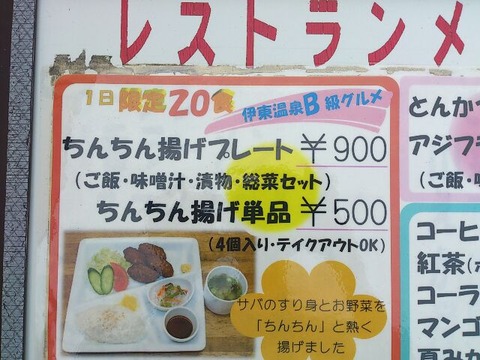 レストランメ
1日限定20食
伊東温泉B級グルメ
ちんちん揚げプレート ￥900
(ご飯・味噌汁・漬物・総菜セット)
ちんちん揚げ単品 ￥500
(4個入り・テイクアウトOK)
サバのすり身とお野菜を
「ちんちん」と熱く
揚げました
とんかつ
アジフ
(ご飯・
コーヒ
紅茶
コーラ
マンゴ
夏みか